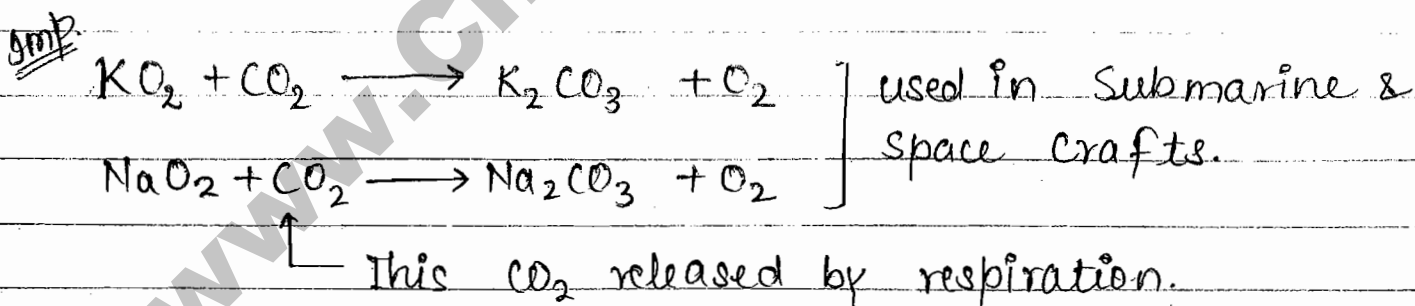 Imp.
KO₂ + CO₂ → K₂CO₃ + O₂ ] used in submarine &
space crafts.
NaO₂ + CO₂ → Na₂CO₃ + O₂
This CO₂ released by respiration.